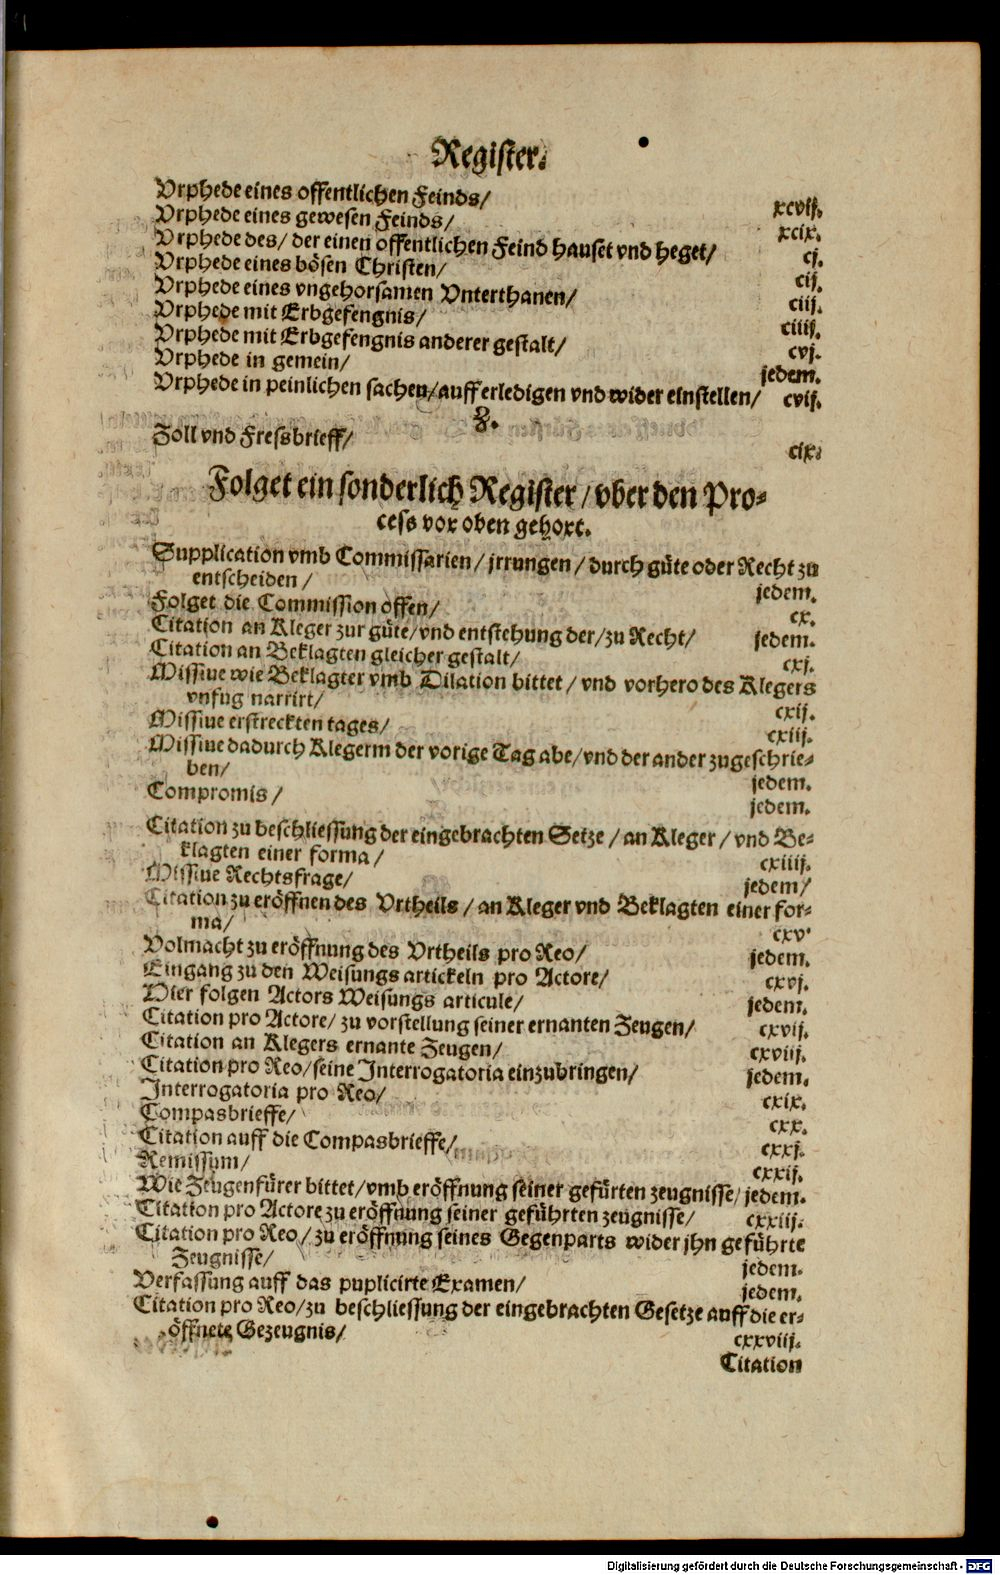 Register.
Vrphede eines offentlichen Feinds/ xcvij.
Vrphede eines gewesen Feinds/ xcix.
Vrphede des/ der einen offentlichen Feind hauset vnd heget/ cj.
Vrphede eines bösen Christen/ cij.
Vrphede eines vngehorsamen Vnterthanen/ ciij.
Vrphede mit Erbgefengnis/ ciiij.
Vrphede mit Erbgefengnis anderer gestalt/ cvj.
Vrphede in gemein/ jedem.
Vrphede in peinlichen sachen/auff erledigen vnd wider einstellen/ cvij.
Z.
Zoll vnd Fressbrieff/ cix.
Folget ein sonderlich Register/ vber den Pro-
cess vor oben gehort.
Supplication vmb Commissarien/ jrrungen/ durch güte oder Recht zu
entscheiden/ jedem.
Folget die Commission offen/ cx.
Citation an Kleger zur güte/vnd entstehung der/zu Recht/ jedem.
Citation an Beklagten gleicher gestalt/ cxj.
Missiue wie Beklagter vmb Dilation bittet/ vnd vorhero des Klegers
vnfug narrirt/ cxij.
Missiue erstreckten tages/ cxiij.
Missiue dadurch Klegerm der vorige Tag abe/vnd der ander zugeschrie-
ben/ jedem.
Compromis/ jedem.
Citation zu beschliessung der eingebrachten Setze/ an Kleger/ vnd Be-
klagten einer forma/ cxiiij.
Missiue Rechtsfrage/ jedem/
Citation zu eröffnen des Vrtheils/ an Kleger vnd Beklagten einer for-
ma/ cxv
Volmacht zu eröffnung des Vrtheils pro Reo/ jedem.
Eingang zu den Weisungs artickeln pro Actore/ cxvj.
Hier folgen Actors Weisungs articule/ jedem.
Citation pro Actore/ zu vorstellung seiner ernanten Zeugen/ cxvij.
Citation an Klegers ernante Zeugen/ cxviij.
Citation pro Reo/seine Interrogatoria einzubringen/ jedem.
Interrogatoria pro Reo/ cxix.
Compasbrieffe/ cxx.
Citation auff die Compasbrieffe/ cxxj.
Remissum/ cxxij.
Wie Zeugenfürer bittet/vmb eröffnung seiner gefürten zeugnisse/ jedem.
Citation pro Actore zu eröffnung seiner geführten zeugnisse/ cxxiij.
Citation pro Reo/ zu eröffnung seines Gegenparts wider jhn geführte
Zeugnisse/ jedem.
Verfassung auff das puplicirte Examen/ jedem.
Citation pro Reo/zu beschliessung der eingebrachten Gesetze auff die er-
öffnete Gezeugnis/ cxxviij.
Citation
Digitalisierung gefördert durch die Deutsche Forschungsgemeinschaft - DFG